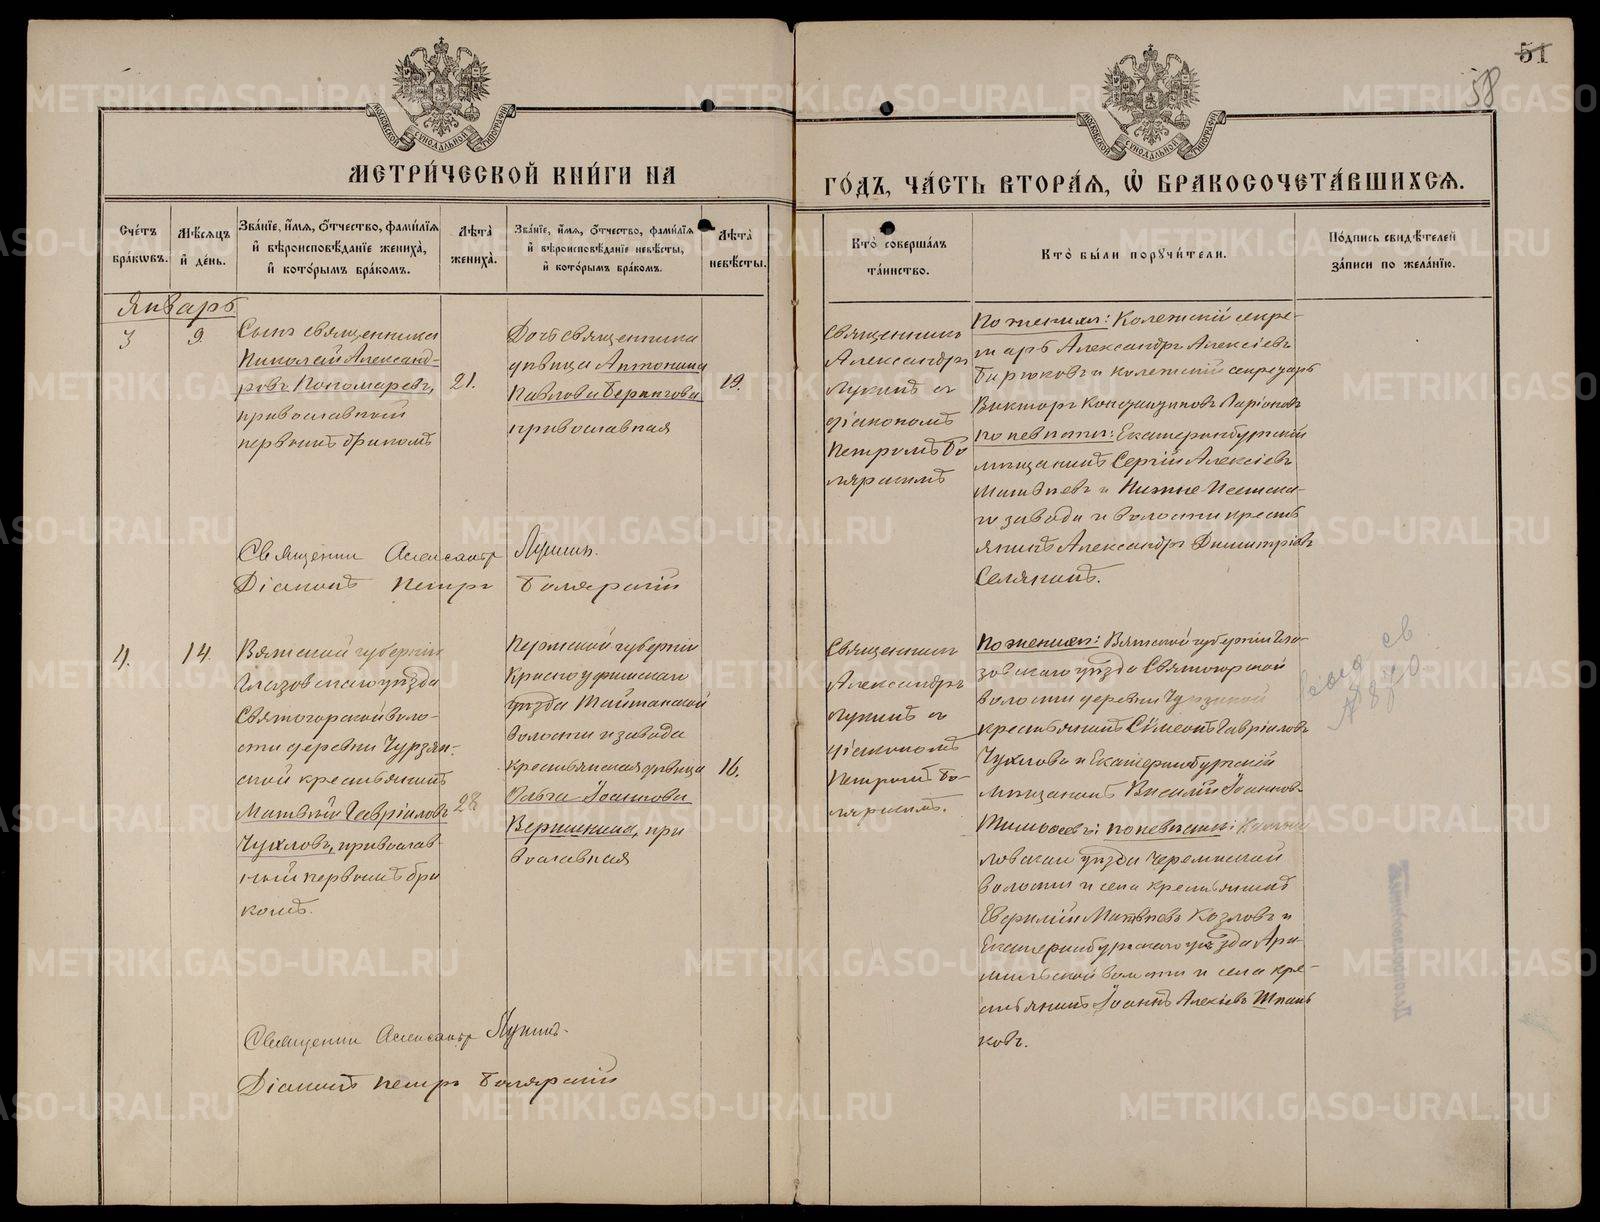 51
58
МОСКОВСКОЙ СѴНОДАЛЬНОЙ ТИПОГРАФІИ
МОСКОВСКОЙ СѴНОДАЛЬНОЙ ТИПОГРАФІИ
МЕТРИ́ЧЕСКОЙ КНИ́ГИ НА
ГО́ДЪ, ЧА́СТЬ ВТОРА́Я, Ѡ БРАКОСОЧЕТА́ВШИХСЯ.
Сче́тъ
бра́кѡвъ.
Мѣ́сяцъ
и҆ де́нь.
Зва́нїе, и҆́мя, ѻ҆́тчество, фами́лїя
и҆ вѣроисповѣ́данїе жениха̀,
и҆ кото́рымъ бра́комъ.
Лѣ́та
жениха̀.
Зва́нїе, и҆́мя, ѻ҆́тчество, фами́лїя
и҆ вѣроисповѣ́данїе невѣ́сты,
и҆ кото́рымъ бра́комъ.
Лѣ́та
невѣ́сты.
Кто̀ соверша́лъ
та́инство.
Кто̀ бы́ли поручи́тели.
По́дпись свидѣ́телей
за́писи по жела́нїю.
Январь
3
9
Сынъ священника
Николай Александ-
ровъ Пономаревъ,
православный
первымъ бракомъ
21.
Дочь священника
дѣвица Антонина
Павлова Берингова
православная
19.
Священникъ
Александръ
Лукинъ съ
діакономъ
Петромъ Бо
лярскимъ
По женихѣ: Колежскій секре-
тарь Александръ Алексіевъ
Бирюковъ и колежскій секретарь
Викторъ Константиновъ Ларіоновъ
по невѣстѣ: Екатеринбургскій
мѣщанинъ Сергій Алексіевъ
Матвѣевъ и Нижне-Исетска-
го завода и волости кресть
янинъ Александръ Димитріевъ
Селянинъ.
Священникъ Александръ Лукинъ.
Діаконъ Петръ Болярскій
4.
14.
Вятской губерніи
Глазовскаго уѣзда
Святогорской воло-
сти деревни Чурзин-
ской крестьянинъ
Матвѣй Гавріиловъ
Чухловъ, православ-
ный первымъ бра
комъ.
28
Пермской губерніи
Красноуфимскаго
уѣзда Шайтанской
волости и завода
крестьянская дѣвица
Ольга Іоаннова
Вершинина, пра
вославная
16.
Священникъ
Александръ
Лукинъ съ
діакономъ
Петромъ Бо-
лярскимъ.
По женихѣ: Вятской губерніи Гла-
зовскаго уѣзда Святогорской
волости деревни
крестьянинъ Сѵмеонъ Гавріиловъ
Чухловъ и Екатеринбургскій
мѣщанинъ Василій Іоанновъ
по невѣстѣ: Камыш
ловскаго уѣзда Черемисской
волости и села крестьянинъ
Матвѣевъ Козловъ и
Екатеринбургскаго уѣзда Ара-
мильской волости и села кре-
стьянинъ Іоаннъ Алексіевъ
ковъ.
Священникъ Александръ Лукинъ.
Діаконъ Петръ Болярскій
METRIKI.GASO-URAL.RU